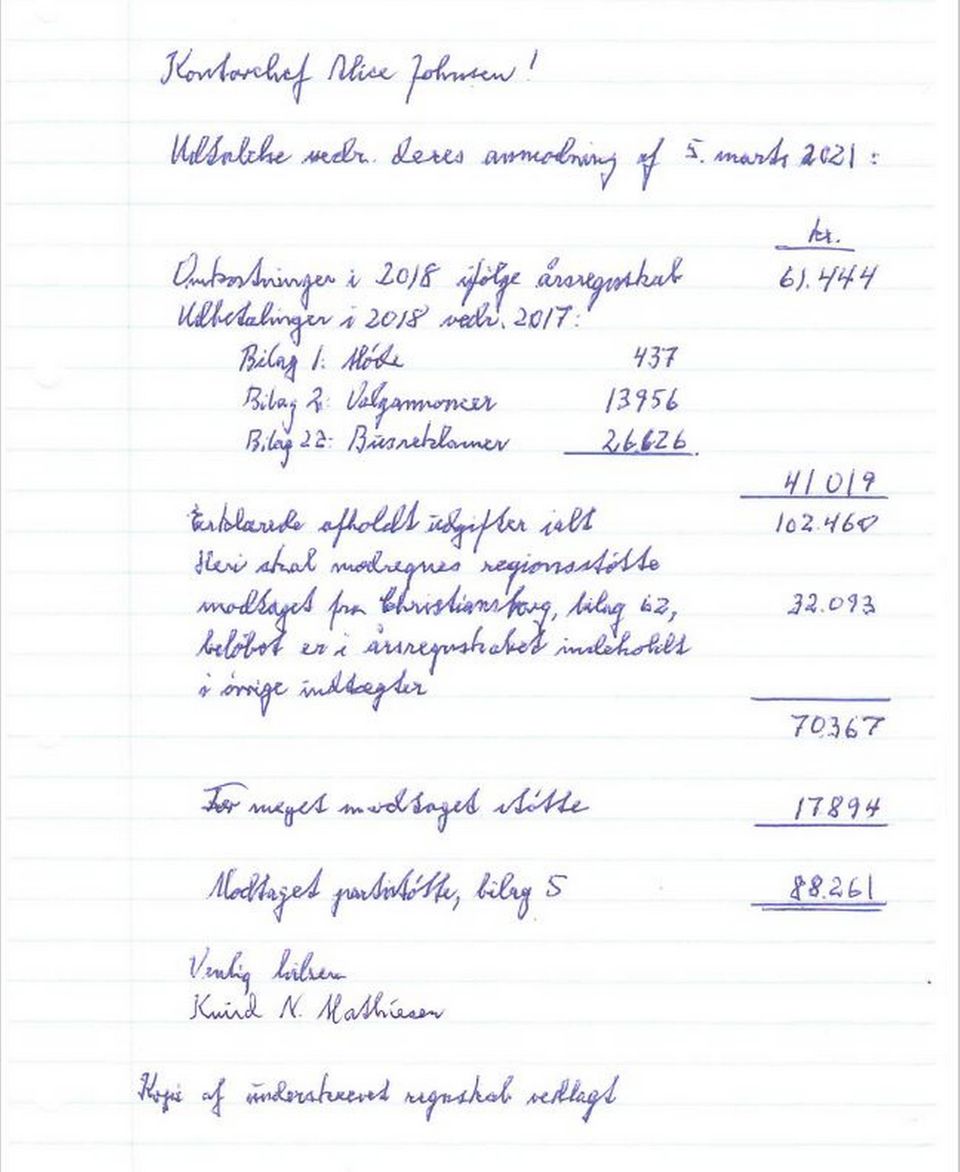 Kontorchef Alice Johnsen!
Udtalelse vedr. deres anmodning af 5. marts 2021:
kr.
Omkostninger i 2018 ifølge årsregnskab 61.444
Udbetalinger i 2018 vedr. 2017:
Bilag 1: Møde 437
Bilag 2: Valgannoncer 13956
Bilag 22: Busreklamer 26.626
41019
Erklærede afholdt udgifter ialt 102.460
Heri skal modregnes regionsstøtte
modtaget fra Christiansborg, bilag 62, 32.093
beløbet er i årsregnskabet indeholdt
i øvrige indtægter
70.367
For meget modtaget støtte 17894
Modtaget partistøtte, bilag 5 88.261
Venlig hilsen
Knud N. Mathiesen
Kopi af underskrevet regnskab vedlagt